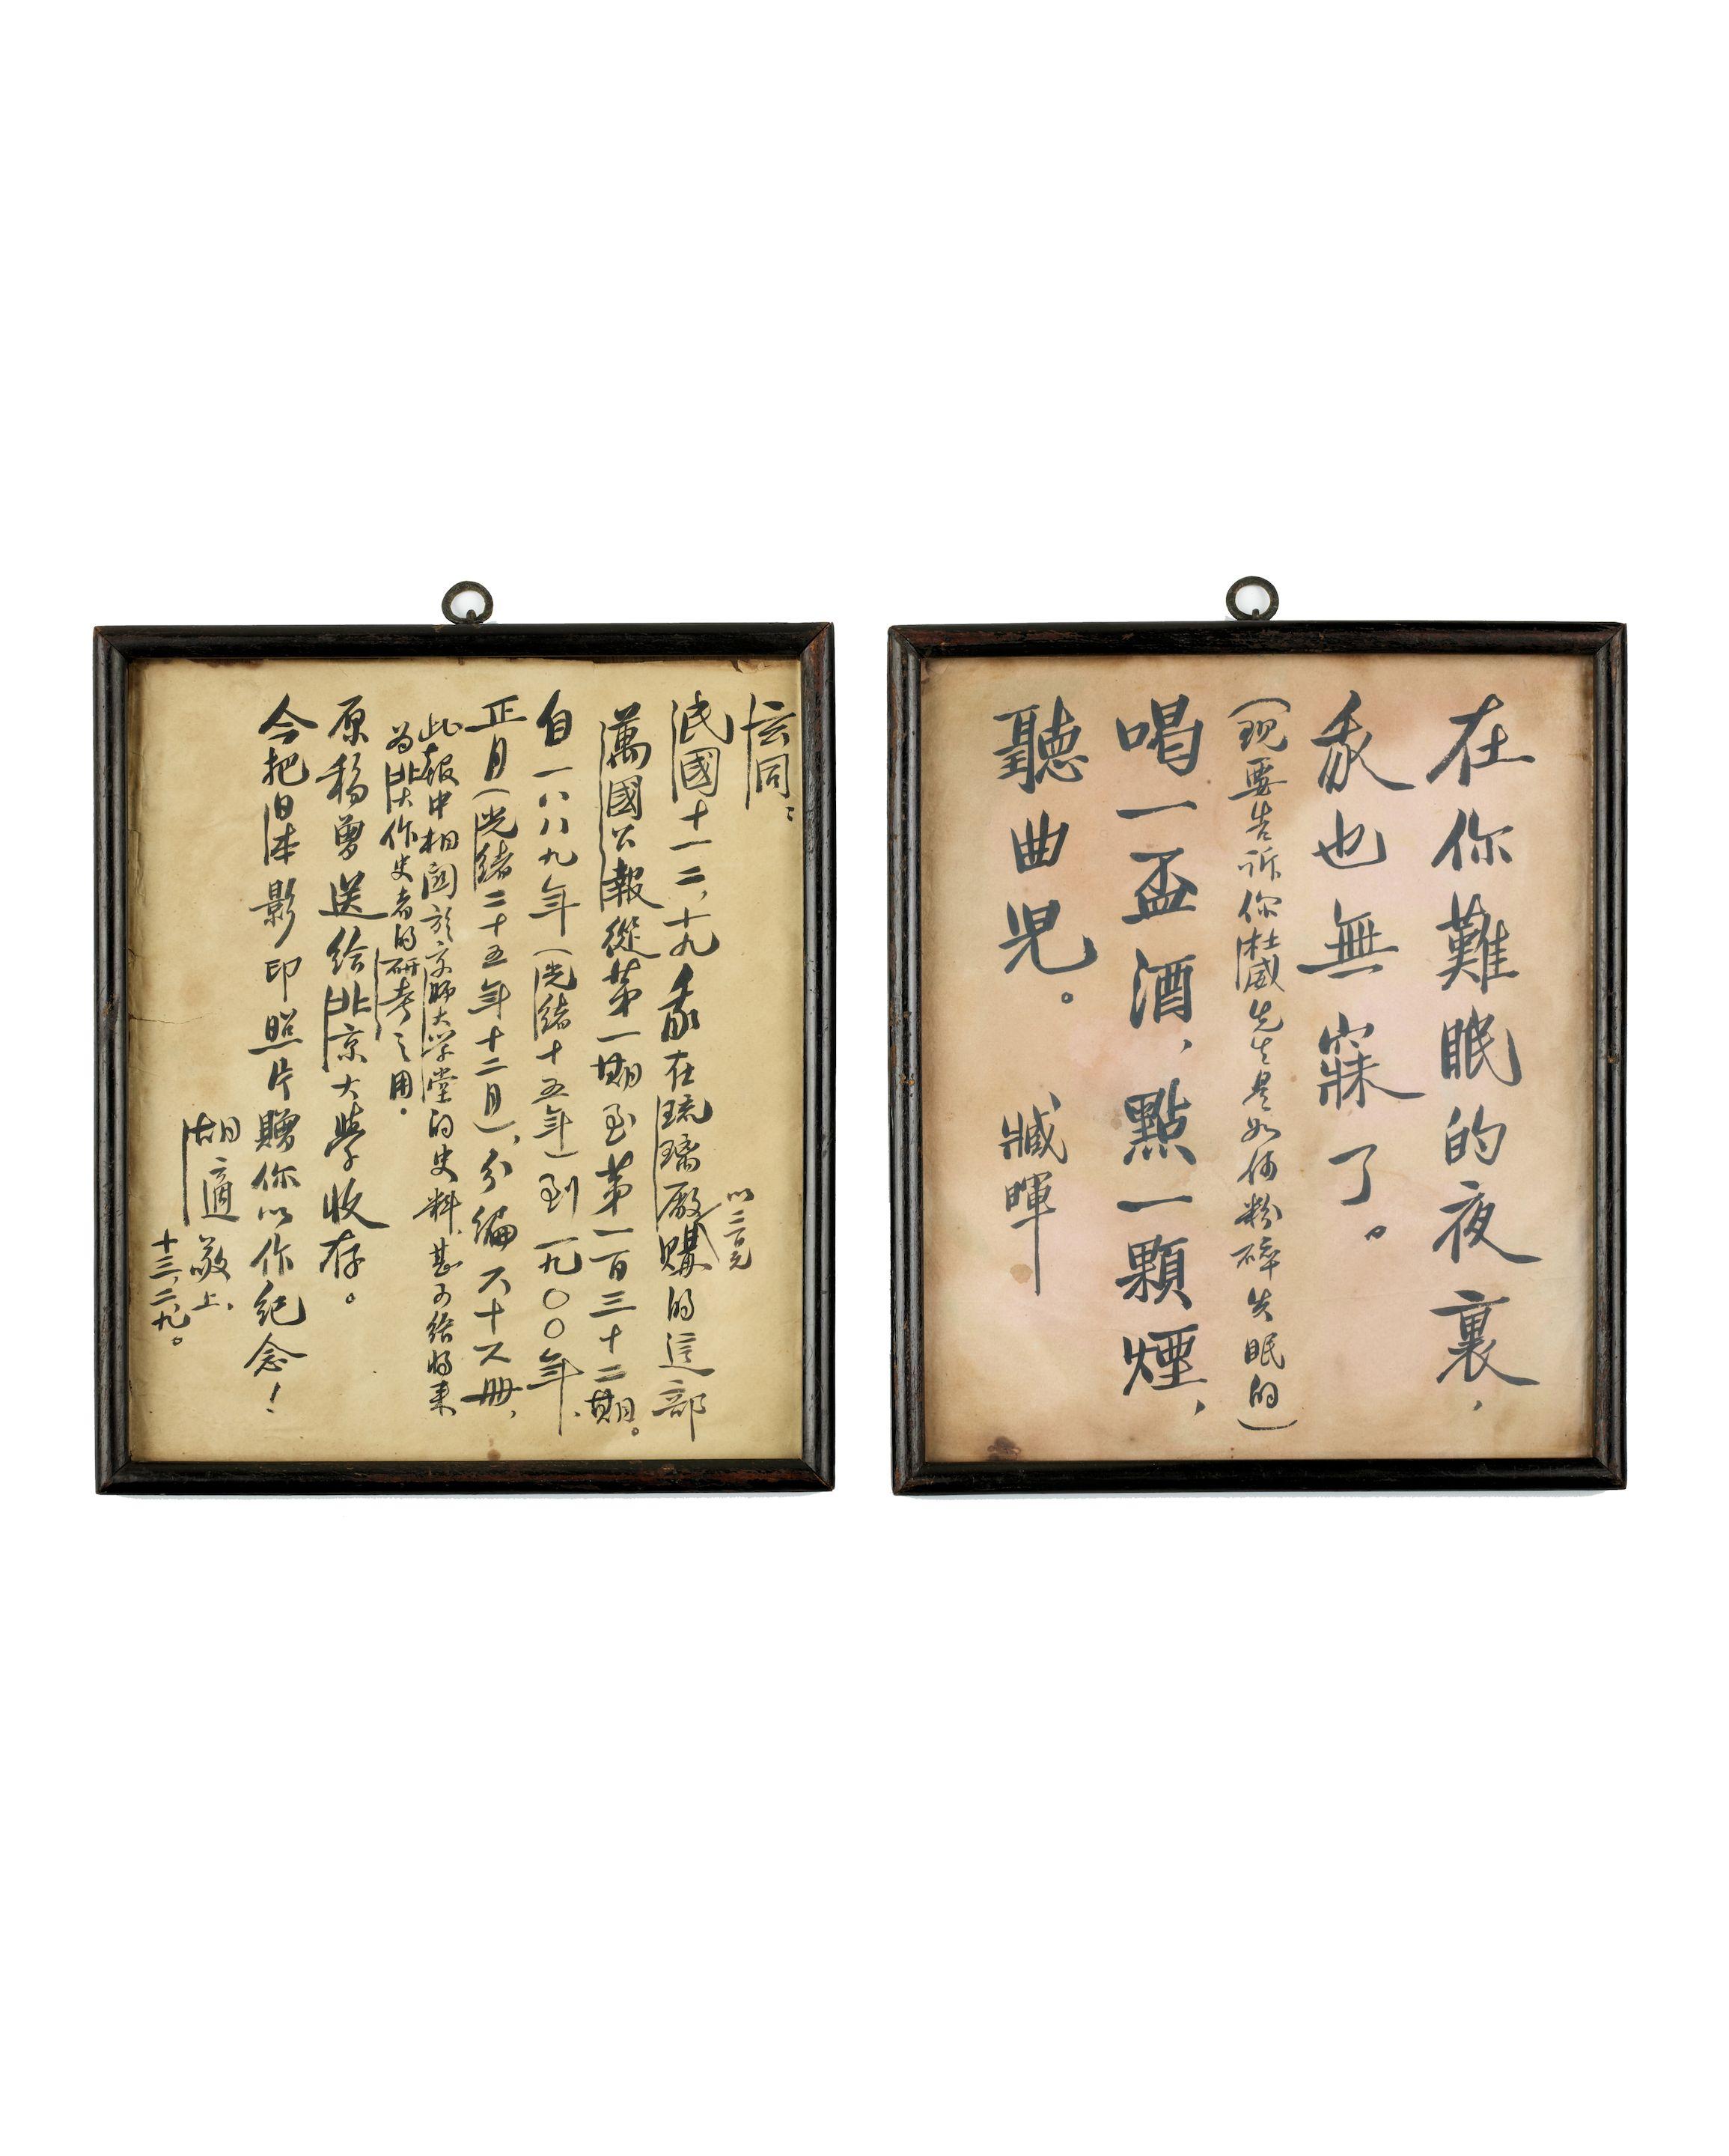 在你難眠的夜裏，
我也無寐了。
（現要告訴你杜威先生是如何粉碎失眠的）
喝一盃酒，點一顆煙，
聽曲児。
臧暉
玄同：
民國十一二，十九我在琉璃廠購的這部
以二百元
萬國公報從第一期至第一百三十二期。
自一八八九年（光緒十五年）到一九〇〇年、
正月（光緒二十五年十二月），分編六十六冊，
此報中相関於京師大学堂的史料，甚可給將来
为北大作史者的研考之用。
原稿曾送給北京大學收存。
今把日本影印照片贈你以作紀念！
胡適敬上、
十三，二九。